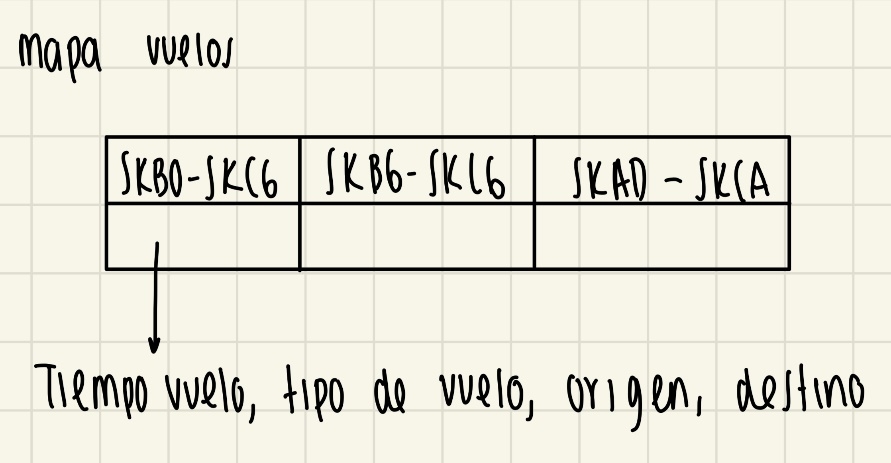 mapa vuelos
SKBO-SKCG SKBG-SKCG SKAD - SKCA
Tiempo vuelo, tipo de vuelo, origen, destino